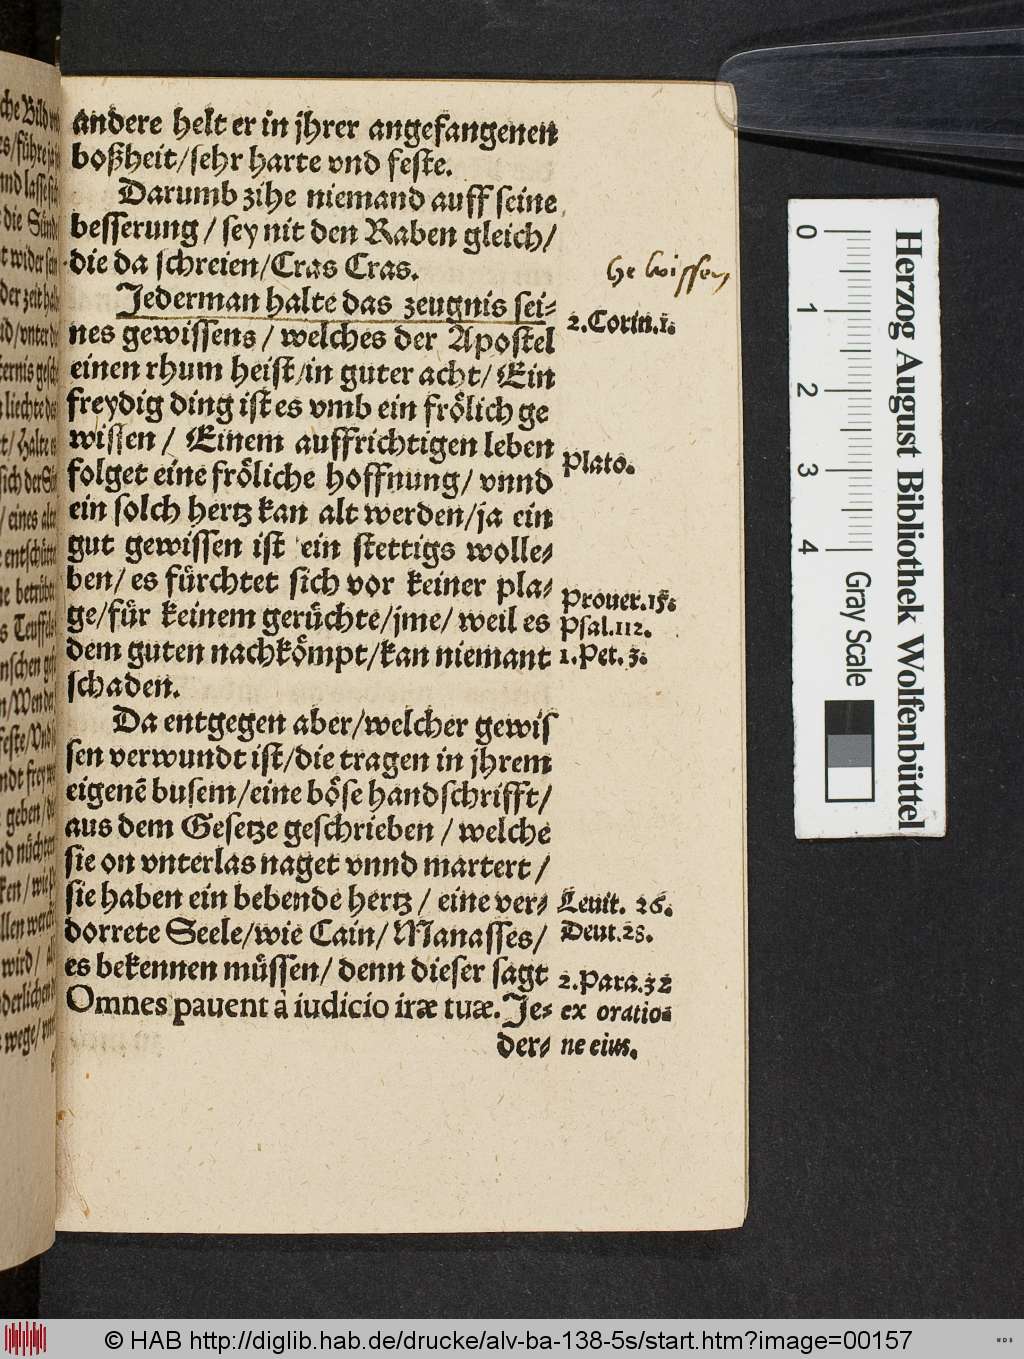 andere helt er in jhrer angefangenen
boßheit/sehr harte vnd feste.
Darumb zihe niemand auff seine
besserung / sey nit den Raben gleich/
die da schreien/Cras Cras.
Jederman halte das zeugnis sei-
nes gewissens / welches der Apostel
einen rhum heist/in guter acht/ Ein
freydig ding ist es vmb ein frölich ge
wissen / Einem auffrichtigen leben
folget eine fröliche hoffnung/ vnnd
ein solch hertz kan alt werden/ja ein
gut gewissen ist ein stettigs wolle-
ben/ es fürchtet sich vor keiner pla-
ge/für keinem gerüchte/jme/ weil es
dem guten nachkömpt/kan niemant
schaden.
Da entgegen aber/welcher gewis
sen verwundt ist/die tragen in jhrem
eigenē busem/eine böse handschrifft/
aus dem Gesetze geschrieben / welche
sie on vnterlas naget vnnd martert /
sie haben ein bebende hertz / eine ver-
dorrete Seele/wie Cain/ Manasses/
es bekennen müssen/ denn dieser sagt
Omnes pavent à iudicio iræ tuæ. Je-
der-
Gewissen
2.Corin.1.
Plato.
Prouer.15.
Psal.112.
1.Pet.3.
Leuit. 26.
Deut.28.
2.Para.32
ex oratio-
ne eius.
0 1 2 3 4
Gray Scale
Herzog August Bibliothek Wolfenbüttel
© HAB http://diglib.hab.de/drucke/alv-ba-138-5s/start.htm?image=00157